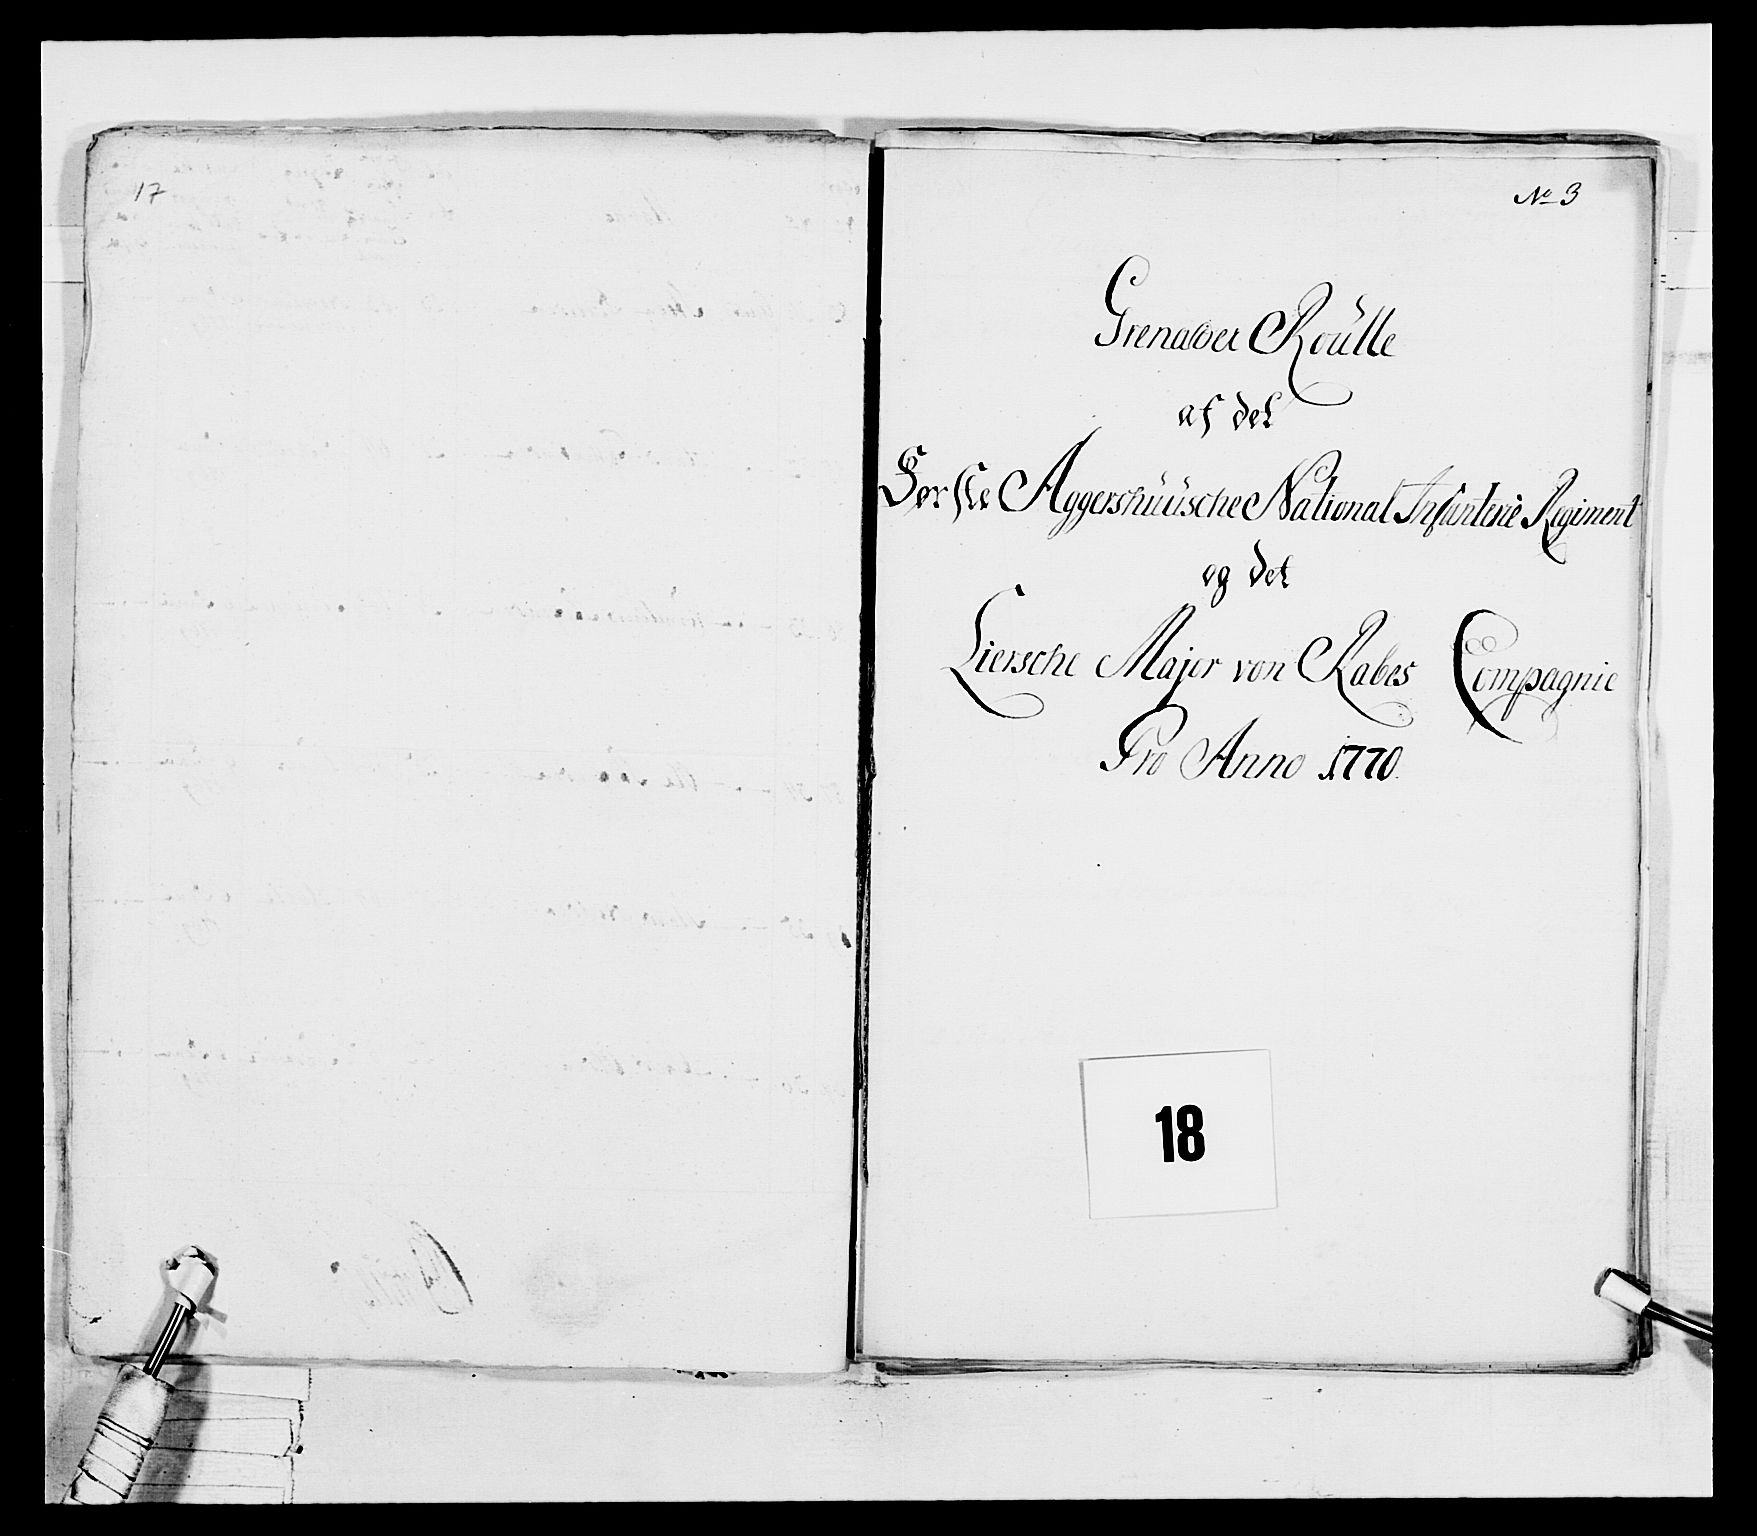 17
No 3
Grenadeer Roülle
af det
Førske Aggershüüsche National Infanterie Regiment
og det
Liersche Major von Rabes Compagnie
Pro Anno 1770.
18